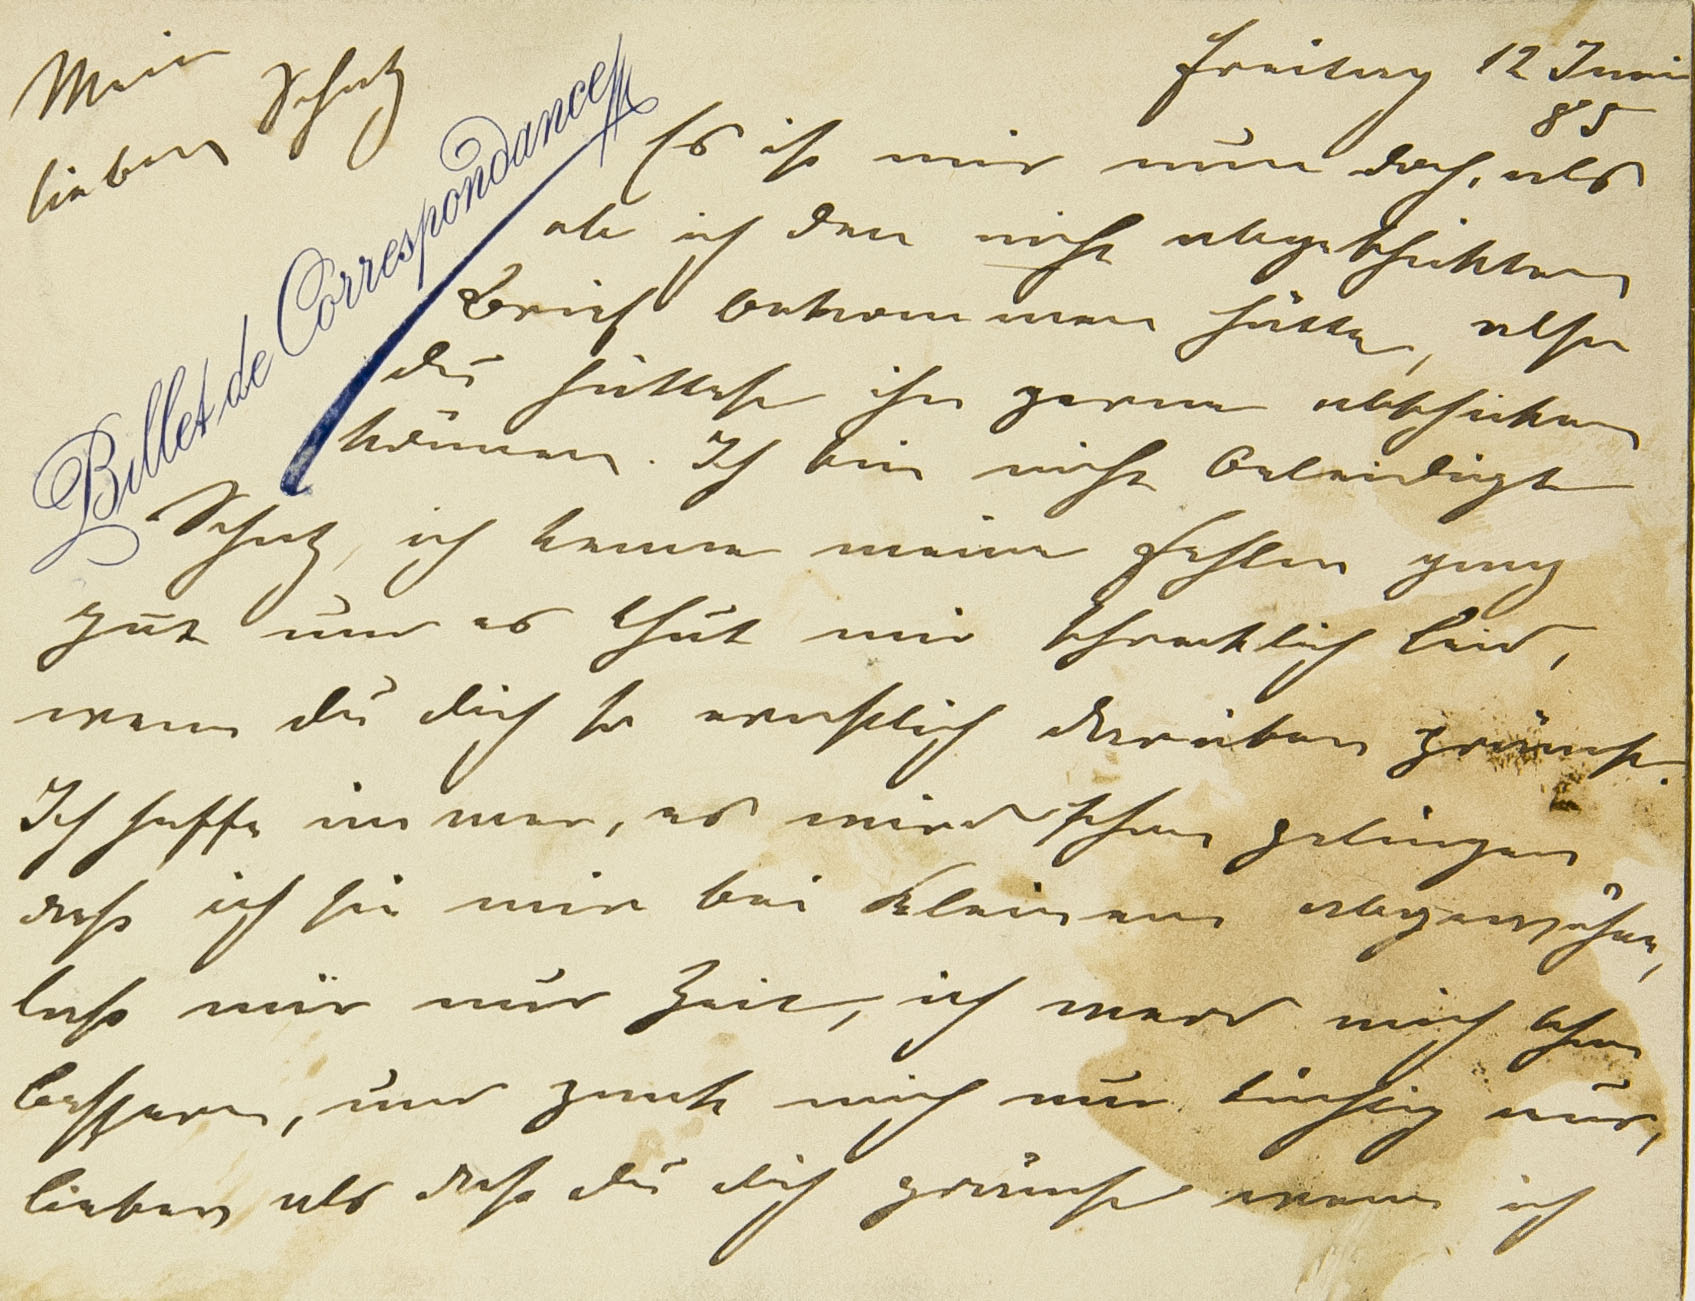 Freitag 12 Juni
85
Mein
lieber Schatz
Billet de Correspondance
Es ist mir nun doch, als
ob ich den nicht abgeschickten
Brief bekommen hätte, also
du hättest ihn gerne abschicken
können. Ich bin nicht beleidigt
Schatz, ich kenne meine Fehler ganz
gut und es thut mir schrecklich leid,
wenn du dich so ernstlich darüber grämst.
Ich hoffe immer, es wird schon gelingen
daß ich sie mir bei Kleinem abgewöhne,
laß mir nur Zeit, ich werd mich schon
bessern, und zank mich nur tüchtig aus,
lieber als daß du dich grämst wenn ich